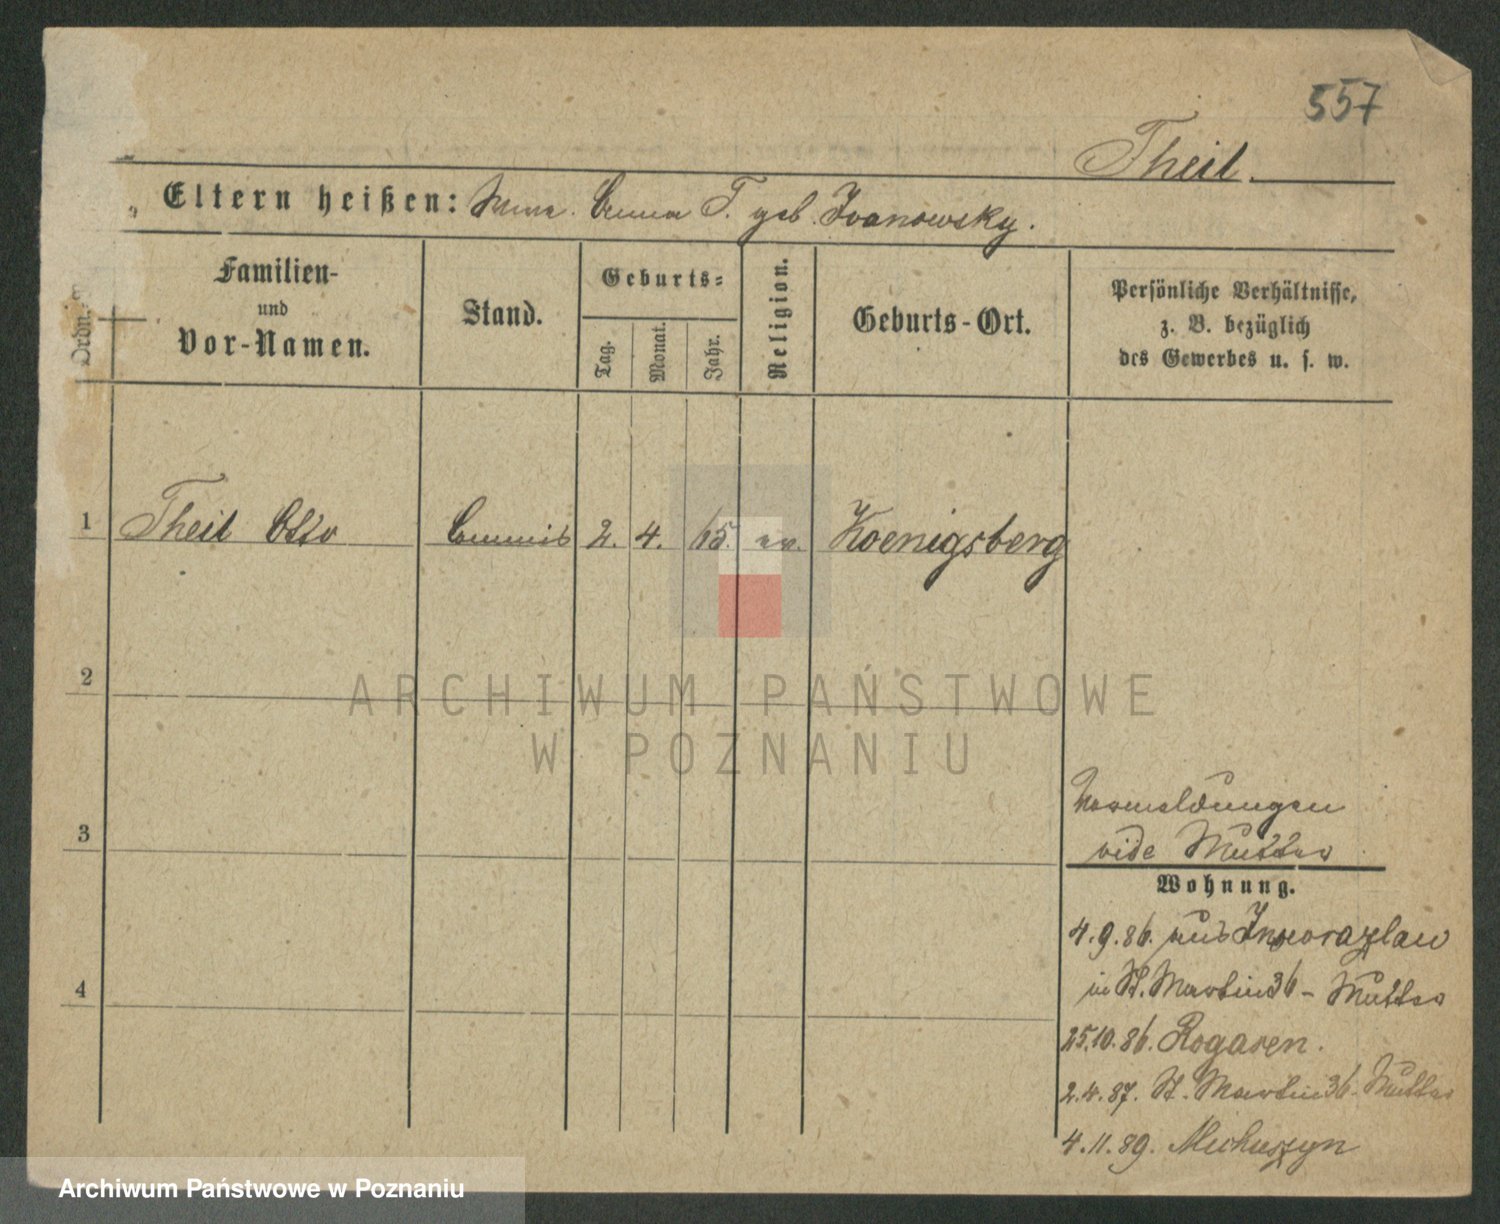 557
Theil.
Eltern heißen: Wwe. Anna T. geb. Ivanowsky.
Ordn.
Familien-
und
Vor-Namen.
Stand.
Geburts-
Tag.
Monat.
Jahr.
Religion.
Geburts-Ort.
Persönliche Verhältnisse,
z. B. bezüglich
des Gewerbes u. s. w.
1 Theil Otto Commis 2. 4. 65. ev. Koenigsberg
2
ARCHIWUM PAŃSTWOWE
W POZNANIU
3
Vormeldungen
vide Mutter
Wohnung.
4.9.86. aus Inowrazlaw
4
in St. Martin 36 - Mutter
25.10.86. Rogasen.
2.4.87. St. Martin 36. Mutter
4.11.89.
Archiwum Państwowe w Poznaniu